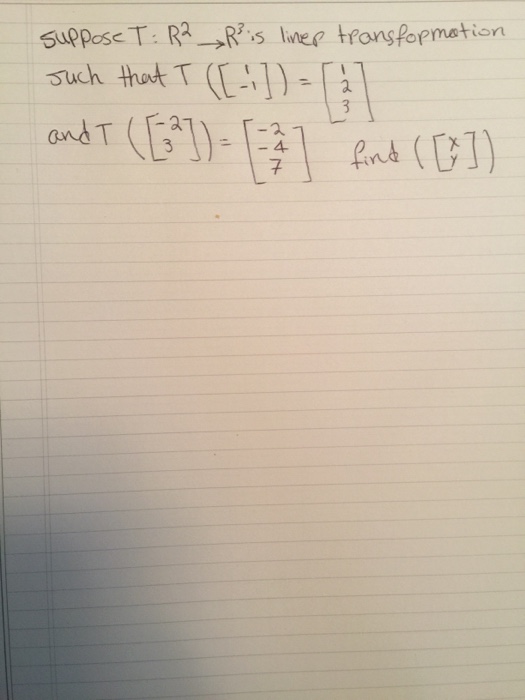 suppose T: R² → R³ is liner transformation
such that T ([1 -1]) = [1 2 3]
and T ([-2 3]) = [-2 -4 7] find ([x y])